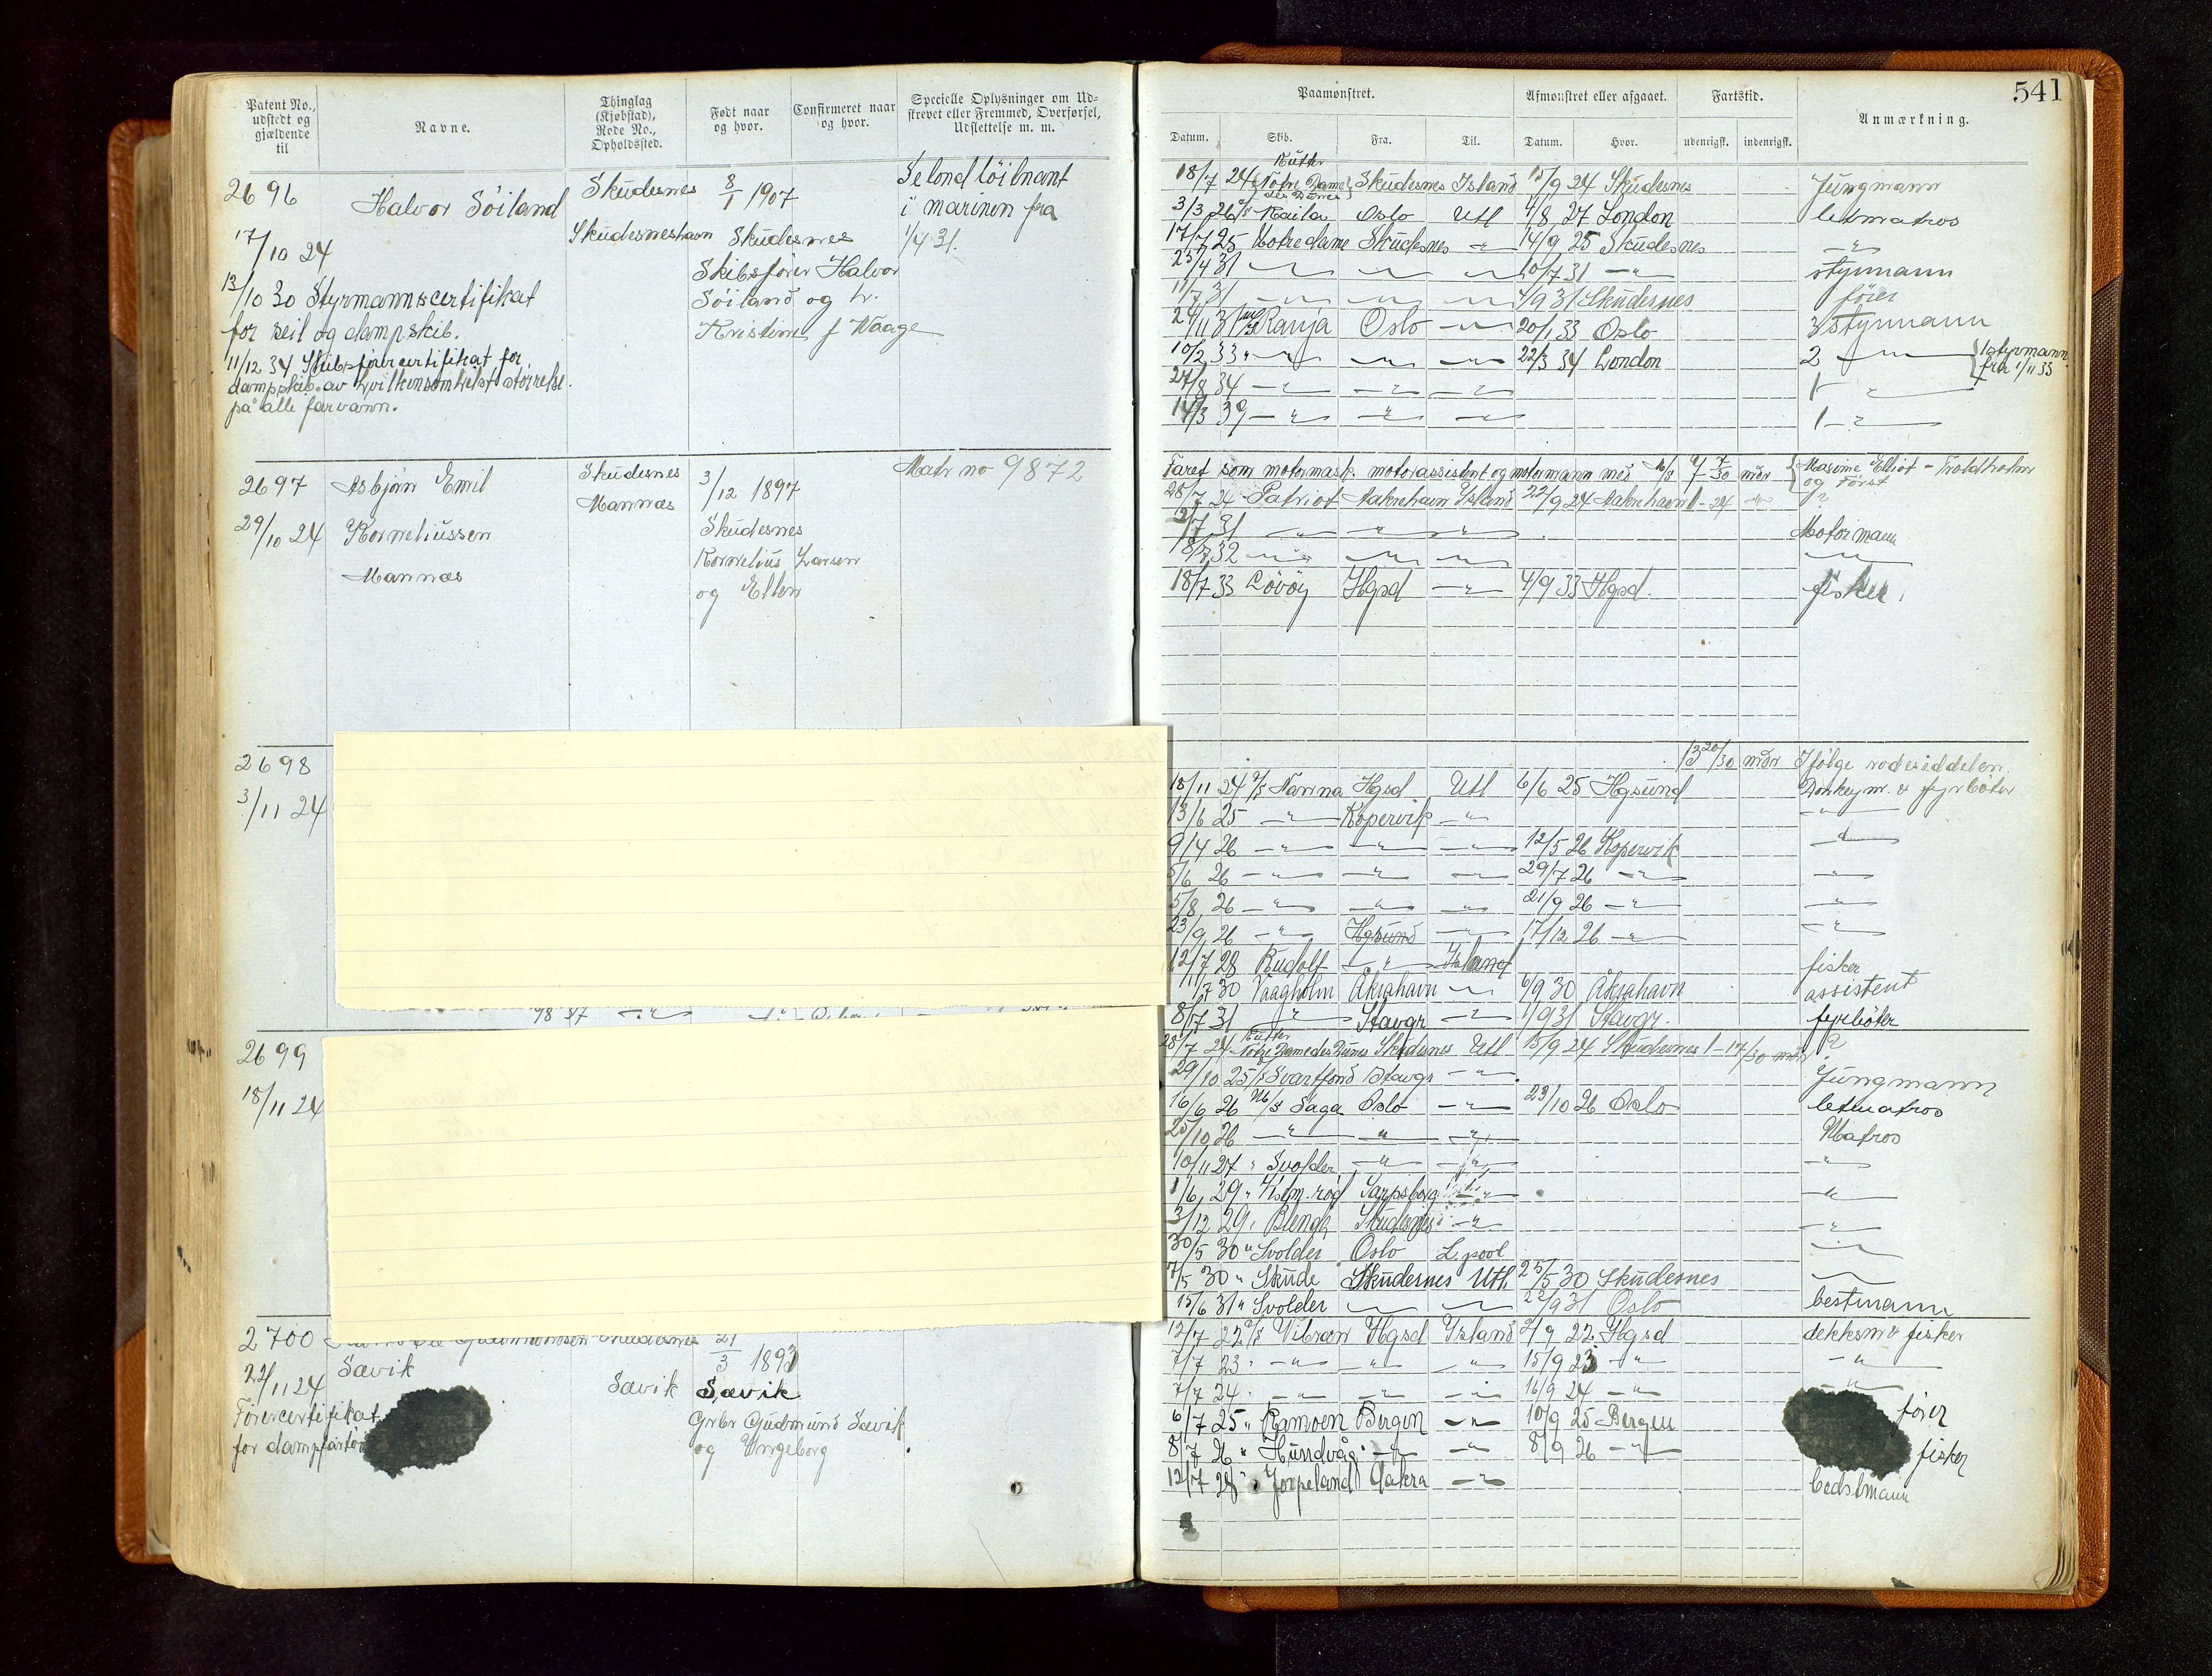 Patent No.,
udstedt og
gjældende
til
Navne.
Thinglag
(Kjøbstad),
Rode No.,
Opholdssted.
Født naar
og hvor.
Confirmeret naar
og hvor.
Specielle Oplysninger om Ud=
strevet eller Fremmed, Overførsel,
Udslettelse m. m.
2696 Halvor Söiland Skudesnes 8/1 1907
17/10 24 Skudesneshavn Skudesnes
i marinen fra
1/4 31.
13/10 30 Styrmannscertifikat
for seil og dampskib.
Skibsfører Halvor
Söiland og h.
Kristine f Waage
11/12 34 Skibsførercertifikat for
dampskib av hvilkensomhelst størrelse
på alle farvann.
2697 Asbjörn Emil Skudesnes 3/12 1897 Matr no 9872
29/10 24 Korneliussen Mannæs Skudesnes
Mannæs Kornelius Larsen
og Ellen
2698
3/11 24
2699
18/11 24
2700 Gudmundsen Skudesnes 21/3 1893
22/11 24 Sævik Sævik Sævik
Førercertifikat Gudmund Sævik
for og Ingeborg
541
Paamønstret.
Afmønstret eller afgaaet.
Fartstid.
Anmærkning.
Datum. Skib. Fra. Til. Datum. Hvor. udenrigsk. indenrigsk.
Kutter
18/7 24 Notre Dame Skudesnes Island 15/9 24 Skudesnes Jungmann
des Dunes
3/3 26 Kaila Oslo Utl 4/8 27 London letmatros
17/7 25 Notredame Skudesnes -"- 14/9 25 Skudesnes -"-
25/4 31 -"- -"- -"- 10/7 31 -"- styrmann
11/7 31 -"- -"- -"- 4/9 31 Skudesnes fører
24/11 31 Ranja Oslo -"- 20/1 33 Oslo 3 styrmann
10/2 33 -"- -"- -"- 22/3 34 London 2 -"- 1styrmann
fra 1/11 33
27/8 34 -"- -"- -"- 1 -"-
14/3 39 -"- -"- -"- 1 -"-
Faret som motormask. motorassistent og motormann med
og Förs
28/7 24 Patriot Aakrehavn Island 22/9 24 Aakrehavn 1 - 24 -"- ?
12/7 31 -"- -"- -"- Motormann
18/7 32 -"- -"- -"- -"-
18/7 33 Lövöy Hgsd -"- 4/9 33 Hgsd. fisker
13 20/30 mdr Ifølge rodeseddelen
18/11 24 Nanna Hgsd Utl 6/6 25 Hgsund Donkeym. & fyrböter
13/6 25 -"- Kopervik -"- -"-
9/4 26 -"- -"- -"- 12/5 26 Kopervik -"-
5/6 26 -"- -"- -"- 29/7 26 -"- -"-
5/8 26 -"- -"- -"- 21/9 26 -"- -"-
23/9 26 -"- Hgsund -"- 17/12 26 -"- -"-
12/7 28 Rudolf -"- Island fisker
11/7 30 Vaagholm Åkrahavn -"- 6/9 30 Åkrahavn assistent
8/7 31 -"- Stavgr -"- 1/9 31 Stavgr. fyrböter
Kutter
28/7 24 Notre Dame des Dunes Skudesnes Utl 15/9 24 Skudesnes 1 - 17/30 mdr ?
29/10 25 Svartfond Stavgr -"- Jungmann
16/6 26 M/S Saga Oslo -"- 23/10 26 Oslo letmatros
25/10 26 -"- -"- -"- Matros
10/11 27 " Svolder -"- -"- -"-
1/6 29 " Sarpsborg -"- -"-
3/12 29 " Skudesnes -"- -"-
30/5 30 " Svolder Oslo L.pool -"-
7/5 30 " Skude Skudesnes Utl. 25/5 30 Skudesnes -"-
15/6 31 " Svolder -"- -"- 22/9 31 Oslo bestmann
12/7 22 Vibran Hgsd Island 2/9 22 Hgsd dekksm & fisker
7/7 23 " -"- -"- -"- 15/9 23 -"- -"-
7/7 24 " -"- -"- -"- 16/9 24 -"- -"-
6/7 25 " Ramoen Bergen -"- 10/9 25 Bergen fører
8/7 26 " Hundvåg -"- -"- 8/9 26 -"- fisker
12/7 28 " Jorpeland Aakra -"- bedstmann